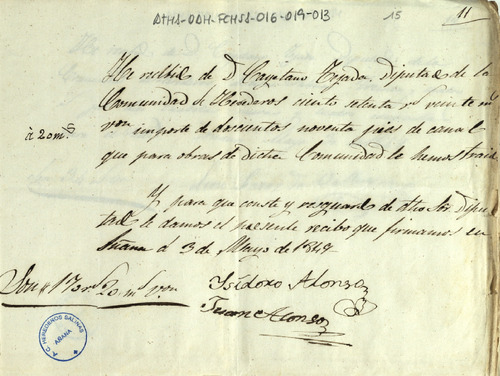 ATHA-DAH-FCHSA-016-019-013
15
11
He recibido de D. Cayetano Tejada, Diputado de la
Comunidad de Herederos ciento setenta rs veinte ms
von importe de doscientos noventa pies de canal
que para obras de dicha Comunidad le hemos traido
à 20 ms
Y para que conste y resguardo de dho Sor Dipu-
tado le damos el presente recibo que firmamos en
Añana à 3 de Mayo de 1849
Son 170 rs 20 ms von
Isidoro Alonso
Alonso
A.C. HEREDEROS SALINAS
AÑANA